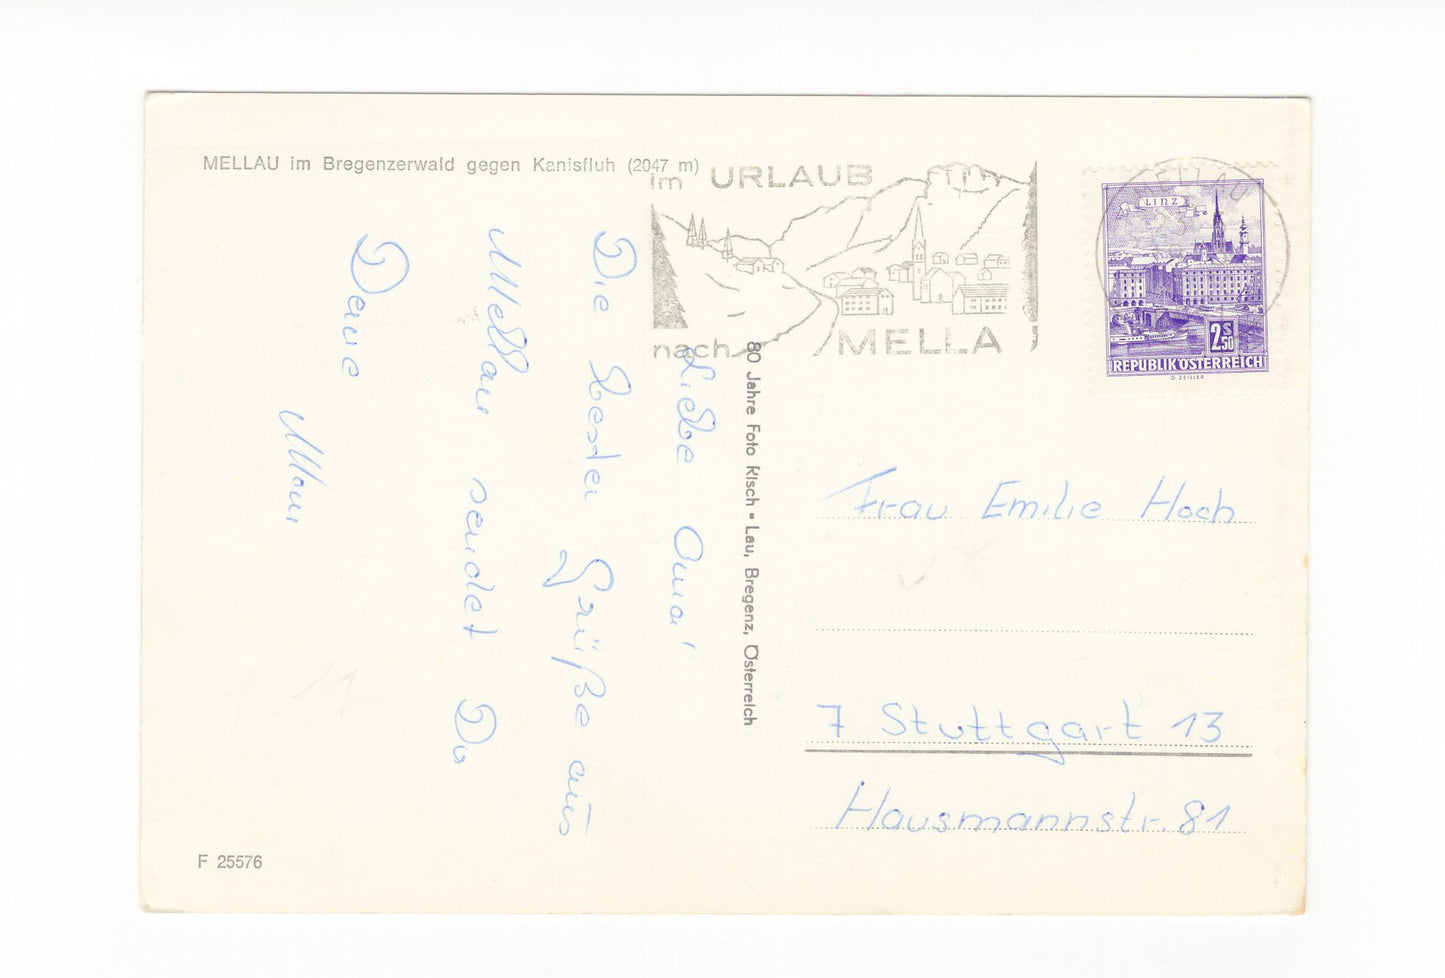 MELLAU im Bregenzerwald gegen Kanisfluh (2047 m)
im URLAUB
nach MELLA
MELLAU
LINZ
2S50
REPUBLIK ÖSTERREICH
O. ZEILLER
Liebe Oma!
Die besten Grüße aus
Mellau sendet Dir
Deine
80 Jahre Foto Risch-Lau, Bregenz, Österreich
Frau Emilie Hoch
7 Stuttgart 13
Hausmannstr. 81
F 25576